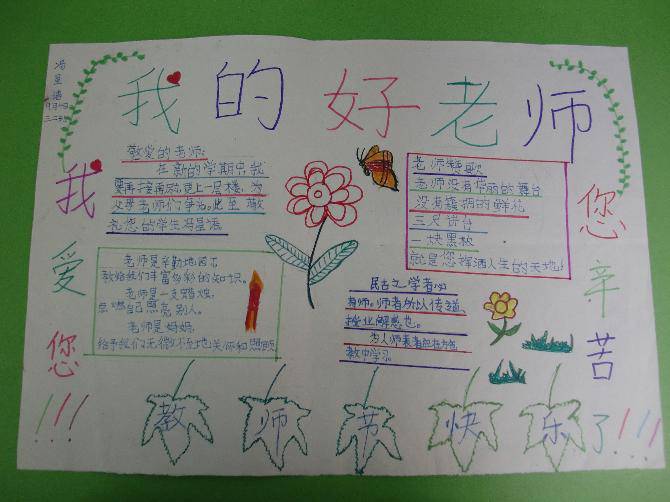 我的好老师
冯
星
语
我
爱
您
!!!
敬爱的老师:
在新的学期中我
要再接再励,更上一层楼,为
这是老师们争光。此至敬
礼您的学生冯星语
老师是辛勤地园丁
教给我们丰富多彩的知识。
老师是一支蜡烛,
点燃自己照亮别人。
老师是妈妈,
给予我们无微不至地关怀和照顾
老师赞歌
老师没有华丽的舞台
没有簇拥的鲜花
三尺讲台
一块黑板
就是您挥洒人生的天地!
民古之学者必
有师。师者所以传道
授业解惑也。
为人师表者应在方
教中学习
您
辛
苦
了!!!
教师节快乐